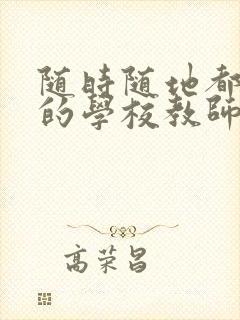 随時随地都
的學校教師
高荣昌